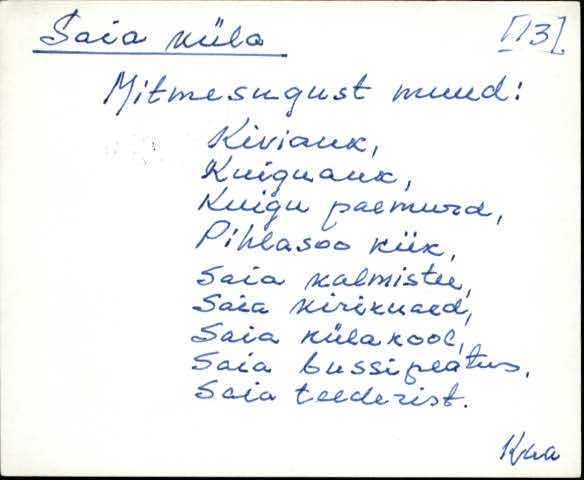 Saia küla [13]
Mitmesugust muud:
Kiviauk,
Kuiguauk,
Kuigu paemurd,
Pihlasoo kük,
Saia kalmistu,
Saia kirikuaed,
Saia külakool,
Saia bussipeatus,
Saia teederist.